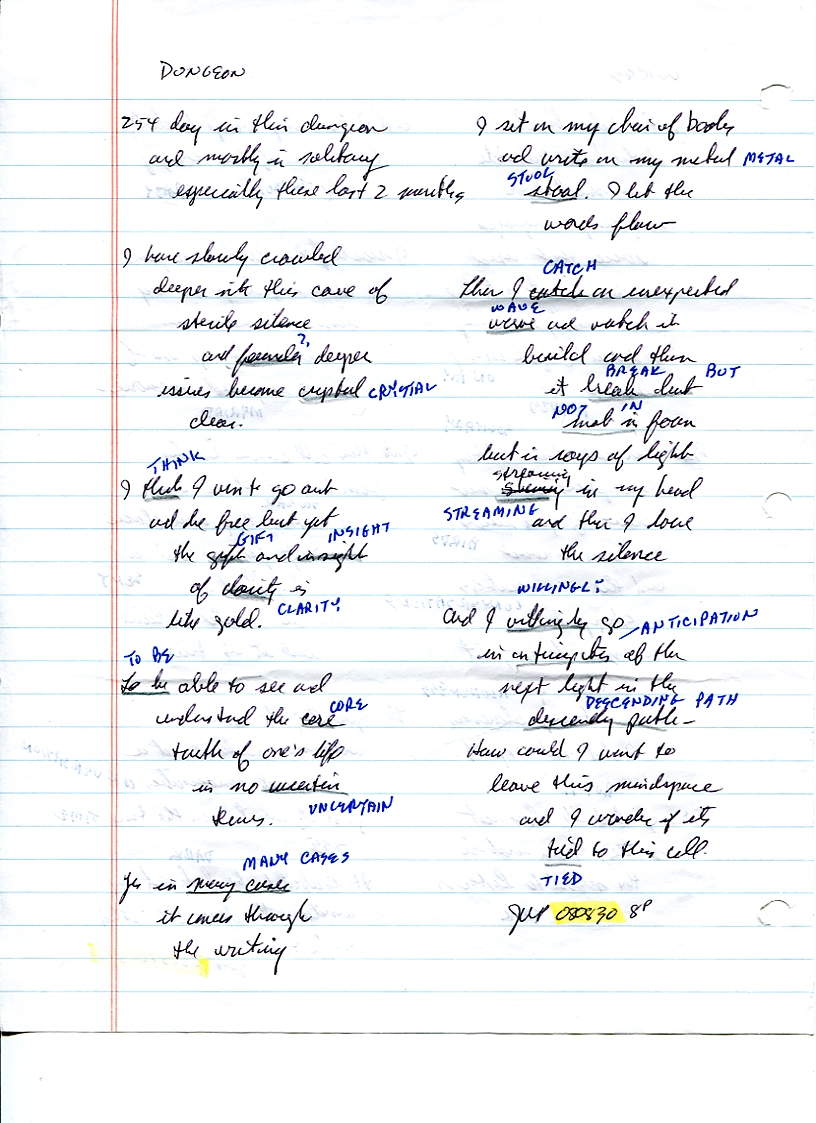 DUNGEON
254 day in this dungeon
and mostly in solitary
especially these last 2 months
I have slowly crawled
deeper into this cave of
sterile silence
?
and deeper
issues become crystal CRYSTAL
clear.
THINK
I think I want to go out
and be free but yet
GIFT INSIGHT
the gift and insight
of clarity is
CLARITY
like gold.
TO BE
to be able to see and
CORE
understand the core
truth of one's life
in no uncertain
UNCERTAIN
terms.
MANY CASES
Yes in many cases
it comes through
the writing
I set on my chair of books
and write on my metal METAL
STOOL
stool. I let the
words flow
CATCH
Then I catch an unexpected
WAVE
wave and watch it
build and then
BREAK BUT
it break but
NOT IN
not in foam
but in rays of light
streaming
in my head
STREAMING
and then I love
the silence
WILLINGLY
And I willingly go
ANTICIPATION
in anticipation of the
next light in the
DESCENDING PATH
descending path-
How could I want to
leave this mindspace
and I wonder if its
tied to this cell.
TIED
JWP 080830 8P